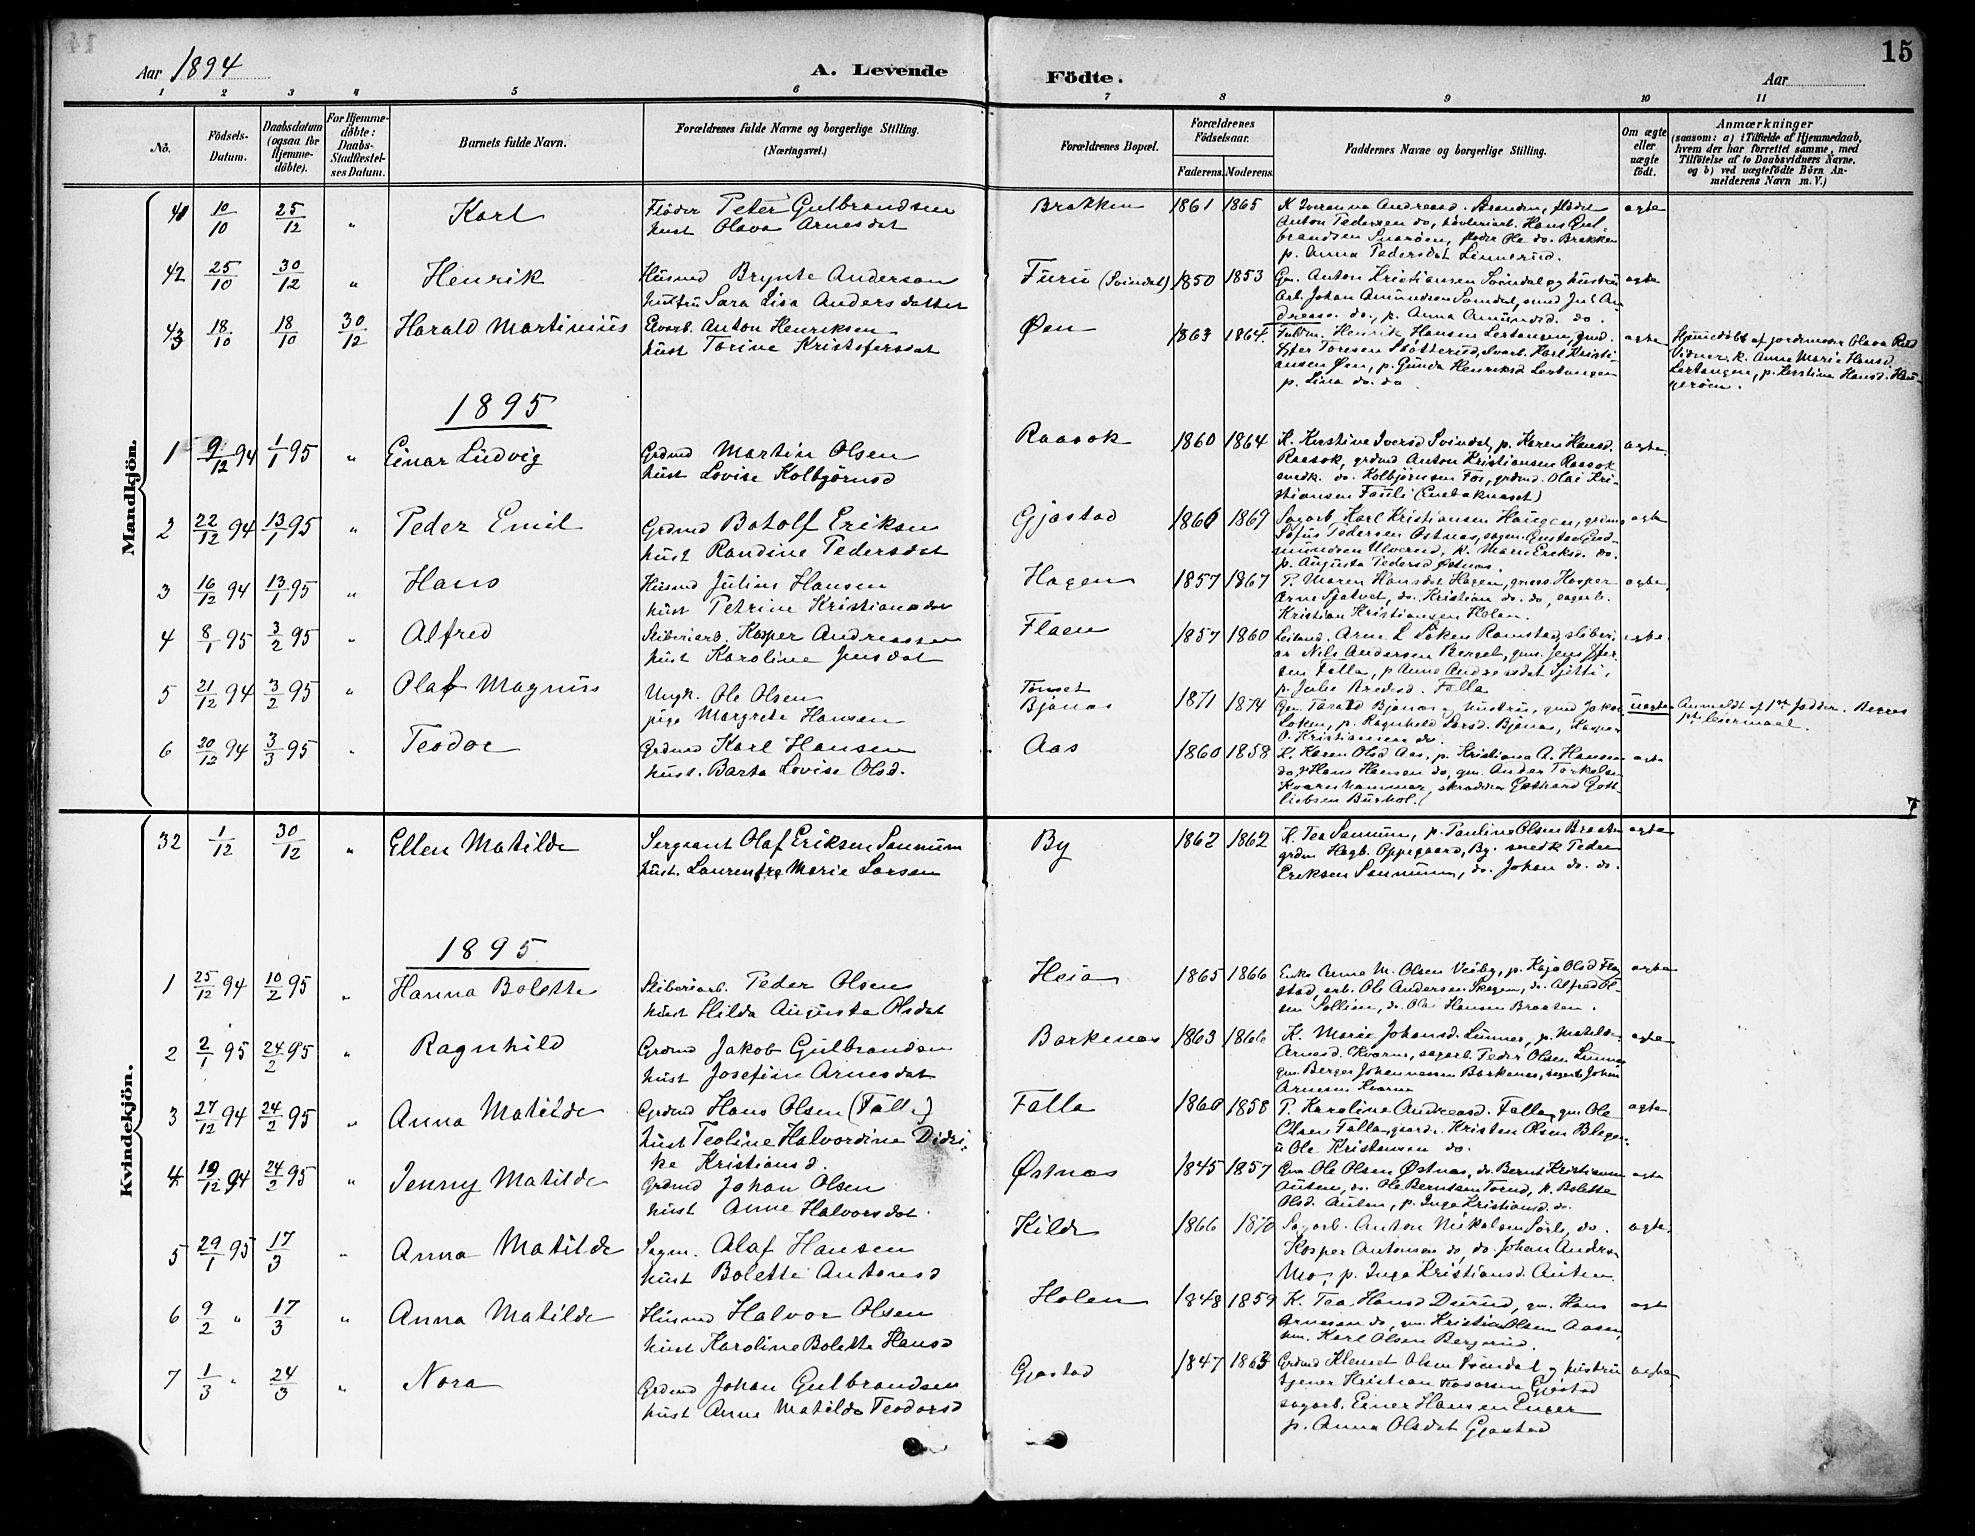 Aar 1894
A. Levende
Födte.
Aar
15
1 2 3 4 5 6 7 8 9 10 11
No.
Födsels-Datum.
Daabsdatum (ogsaa for Hjemme-döbte).
For Hjemme-döbte: Daabs-Stadfæstel-ses Datum.
Barnets fulde Navn.
Forældrenes fulde Navne og borgerlige Stilling.
(Næringsvei.)
Forældrenes Bopæl.
Forældrenes Födselsaar.
Faderens. Moderens.
Faddernes Navne og borgerlige Stilling.
Om ægte eller uægte födt.
Anmærkninger
(saasom: a) i Tilfælde af Hjemmedaab,
hvem der har forrettet samme, med
Tilföielse af to Daabsvidners Navne,
og b) ved uægtefödte Börn An-
melderens Navn m. V.)
Mandkjön.
41 10/10 25/12 " Karl
Fløder Peter Gulbrandsen
hust Olava Arnesdat
Brækken 1861 1865
Anton Pedersen do, høvleriarb. Hans Gul-
brandsen Snarøen, fløder Ole do. Brækken
p. Anna Pedersdat Linnerud.
ægte
42 25/10 30/12 " Henrik
Husmd Brynte Anderson
hustru Sara Lisa Andersdatter
Furu (Svindal) 1850 1853
Gm. Anton Kristiansen Svindal og hustru
Arb. Johan Amundsen Svindal, smed Jul. An-
dreass. do., p. Anna Amundsd. do.
ægte
43 18/10 18/10 30/12 Harald Martinius
Anton Henriksen
hust Torine Kristofersdat
Øen 1863 1864
Henrik Hansen Lertangen, gmd.
Peter Toresen Slotterud, Karl Kristi-
ansen Øen, p. Gunda Henriksd Lertangen
p. Lina do. do
ægte
Hjemdøbt af jordemoder Olava Rud
Vidner: k. Anne Marie Hansd.
Lertangen, p. Kirstine Hansd. Hau-
gerøen.
1895
1 9/12 94 1/1 95 " Einar Ludvig
Grdmd Martin Olsen
hust Lovise Kolbjørnsd
Raasok 1860 1864
K. Kirstine Iversd Svindal, p. Karen Hansd.
Raasok, grdmd Anton Kristiansen Raasok
snedk. do. Kolbjørnsen Fos, grdmd. Olai Kri-
stiansen Fauli (Enebaknæset)
ægte
2 22/12 94 13/1 95 " Peder Emil
Grdmd Botolf Eriksen
hust Randine Pedersdat
Gjøstad 1866 1869
Sagarb. Karl Kristiansen Haugen, grdmd
Sofus Pedersen Østnæs, sagm. Gustav Gud-
mundsen Ulverud, k. Marie Eriksd. do.
p. Augusta Pedersd Østnæs.
ægte
3 16/12 94 13/1 95 " Hans
Husmd Julius Hansen
hust Petrine Kristiansdat
Hagen 1857 1867
P. Maren Hansdat Hagen, Kasper
Arne Sjatvet, do. Kristian do. do, sagarb.
Kristian Kristiansen Holen.
ægte
4 8/1 95 3/2 95 " Alfred
Sliberiarb. Kasper Andreassen
hust Karoline Jensdat
Flaen 1857 1860
Arne L Løken Ramstad, sliberi-
ar Nils Andersen Berget, gm. Jens Iver-
sen Falla, p Anne Andreasdat Sletti,
p. Julie Falla
ægte
5 21/12 94 3/2 95 " Olaf Magnus
Ungk. Ole Olsen
pige Margrete Hansen
Tomset
Bjønæs 1871 1874
Bjønæs og hustru, gmd Jakob
Løken, p. Ragnhild Larsd. Bjønæs, Kasper
O. Kristiansen do.
uægte
Anmeldt af
leiermaal.
6 20/12 94 3/3 95 " Teodor
Grdmd Karl Hansen
hust. Barta Lovise Olsd.
Aas 1860 1858
K. Karen Olsd Aas, p. Kristiana A. Hansen
do, Hans Hansen do, gm. Anders Torkelsen
Kværnhammer, skrædder Gotthard Gott-
liebsen Burhol.
ægte
7
Kvindekjön.
32 1/12 30/12 " Ellen Matilde
Sergeant Olaf Eriksen Sannum
hust. Laurentze Marie Larsen
By 1862 1862
K. Tea Sannum, p. Pauline Olsen Braaten
grdm Hagb. Oppegaard, By. snedk Peder
Eriksen Sannum, do. Johan do. do.
ægte
1895
1 25/12 94 10/2 95 " Hanna Bolette
Sliberiarb. Peder Olsen
hust Hilda Augusta Olsdat
Heia 1865 1866
Enke Anne M. Olsen Veiby, p. Kaja Olsd Fla-
stad, arb. Ole Andersen Skogen, do. Alfred Ol-
sen Sollien, do. Olai Hansen Braaten.
ægte
2 2/1 95 24/2 95 " Ragnhild
Grdmd Jakob Gulbrandsen
hust Josefine Arnesdat
Børkenæs 1863 1866
K. Marie Johansd. Lunnes, p. Matilde
Arnesd. Kværn, sagarb. Peder Olsen Lunnes
gm. Berger Johannessen Børkenæs, sagarb. Johan
Arnesen Kværn
ægte
3 27/12 94 24/2 95 " Anna Matilde
Grdmd Hans Olsen (Falle)
hust Teoline Halvordine Didri-
ke Kristiansd.
Falla 1860 1858
P. Karoline Andreasd. Falla, gm. Ole
Olsen Falla, Kristen Olsen Blegen
u Ole Kristensen do.
ægte
4 19/12 94 24/2 95 " Jenny Matilde
Grdmd Johan Olsen
hust Anne Halvorsdat.
Østnæs 1845 1857
Gm Ole Olsen Østnæs, do. Bernt Kristiansen
Auten, do. Ole Berntsen Torud, k. Bolette
Olsd. Auten, p. Inga Kristiansd. do.
ægte
5 29/1 95 17/3 " Anna Matilde
Sagm. Olaf Hansen
hust Bolette Antonsd
Kilde 1866 1870
Sagarb. Anton Nikolsen Sørli, do.
Kasper Antonsen do, do. Johan Anders.
Mo, p. Inga Kristiansd. Auten
ægte
6 9/2 " 17/3 " Anna Matilde
Husmd Halvor Olsen
hust Karoline Bolette Hansd
Holen 1848 1859
K. Tea Hansd Durud, gm. Hans
Arnesen do, gm. Kristian Olsen Aasen,
Karl Olsen Bergerud.
ægte
7 1/3 " 24/3 " Nora
Grdmd Johan Gulbrandsen
hust Anne Matilde Teodorsd
Gjøstad 1847 1863
Grdmd Klemet Olsen Svindal og hustru
tjener Kristian Teodorsen Gjøstad
sagarb. Einer Hansen Enger
p. Anna Olsdat Gjøstad
ægte